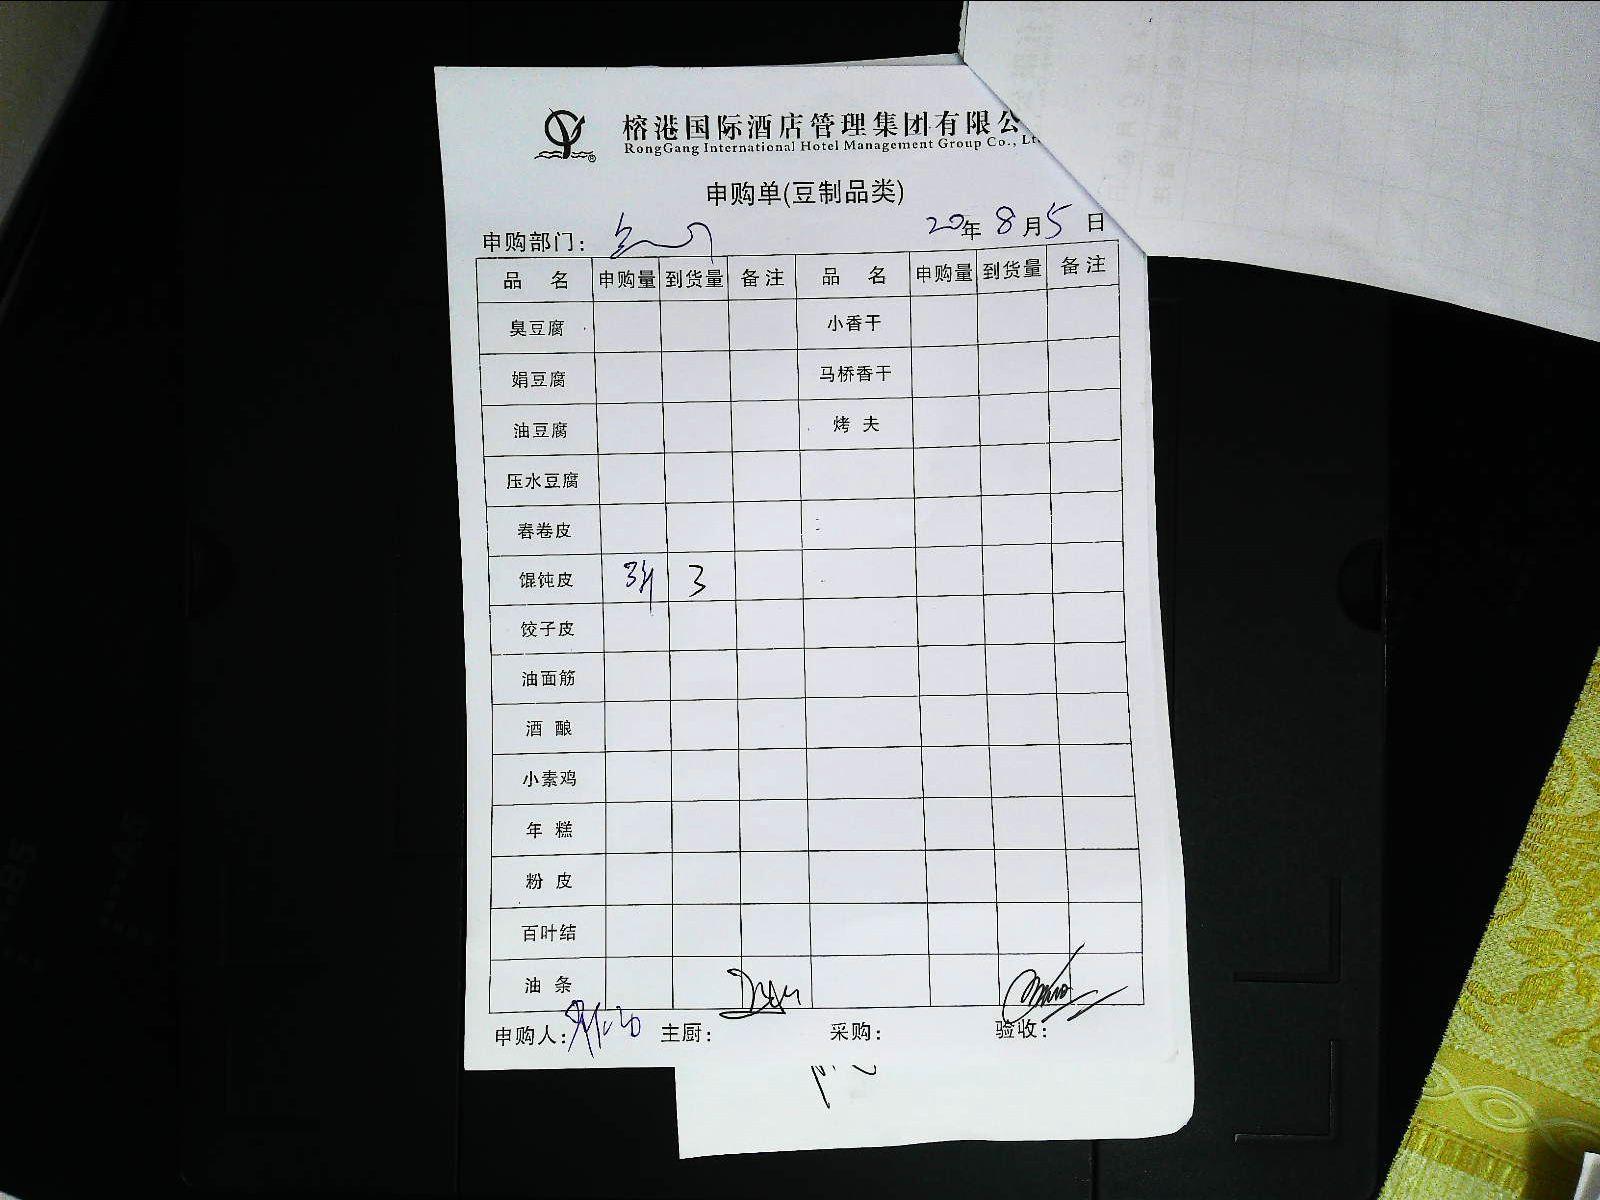 榕港国际酒店管理集团有限公
RongGang International Hotel Management Group Co., Lt
申购单(豆制品类)
申购部门： 20年 8月5 日
品 名 申购量 到货量 备注 品 名 申购量 到货量 备注
臭豆腐 小香干
娟豆腐 马桥香干
油豆腐 烤 夫
压水豆腐
春卷皮
馄饨皮 3斤 3
饺子皮
油面筋
酒 酿
小素鸡
年 糕
粉 皮
百叶结
油 条
申购人： 主厨： 采购： 验收：